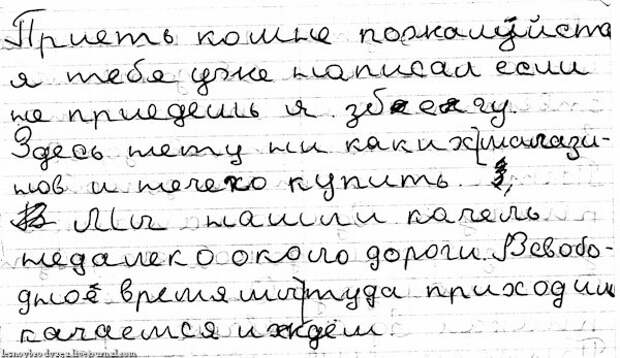 Приеть комне пожалуйста
я тебя уже написал если
не приедешь я збегу.
Здесь нету ни каких магази-
нов и нечего купить.
Мы нашли качель
недалеко около дороги. Всвобо-
дное время мы туда приходим
качаемся иждём
lesnoybrodyaga.livejournal.com